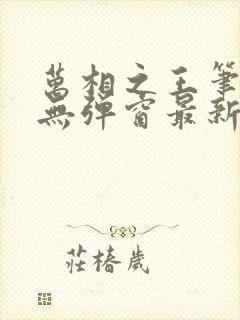 萬相之王筆
無彈窗最新
莊椿歲